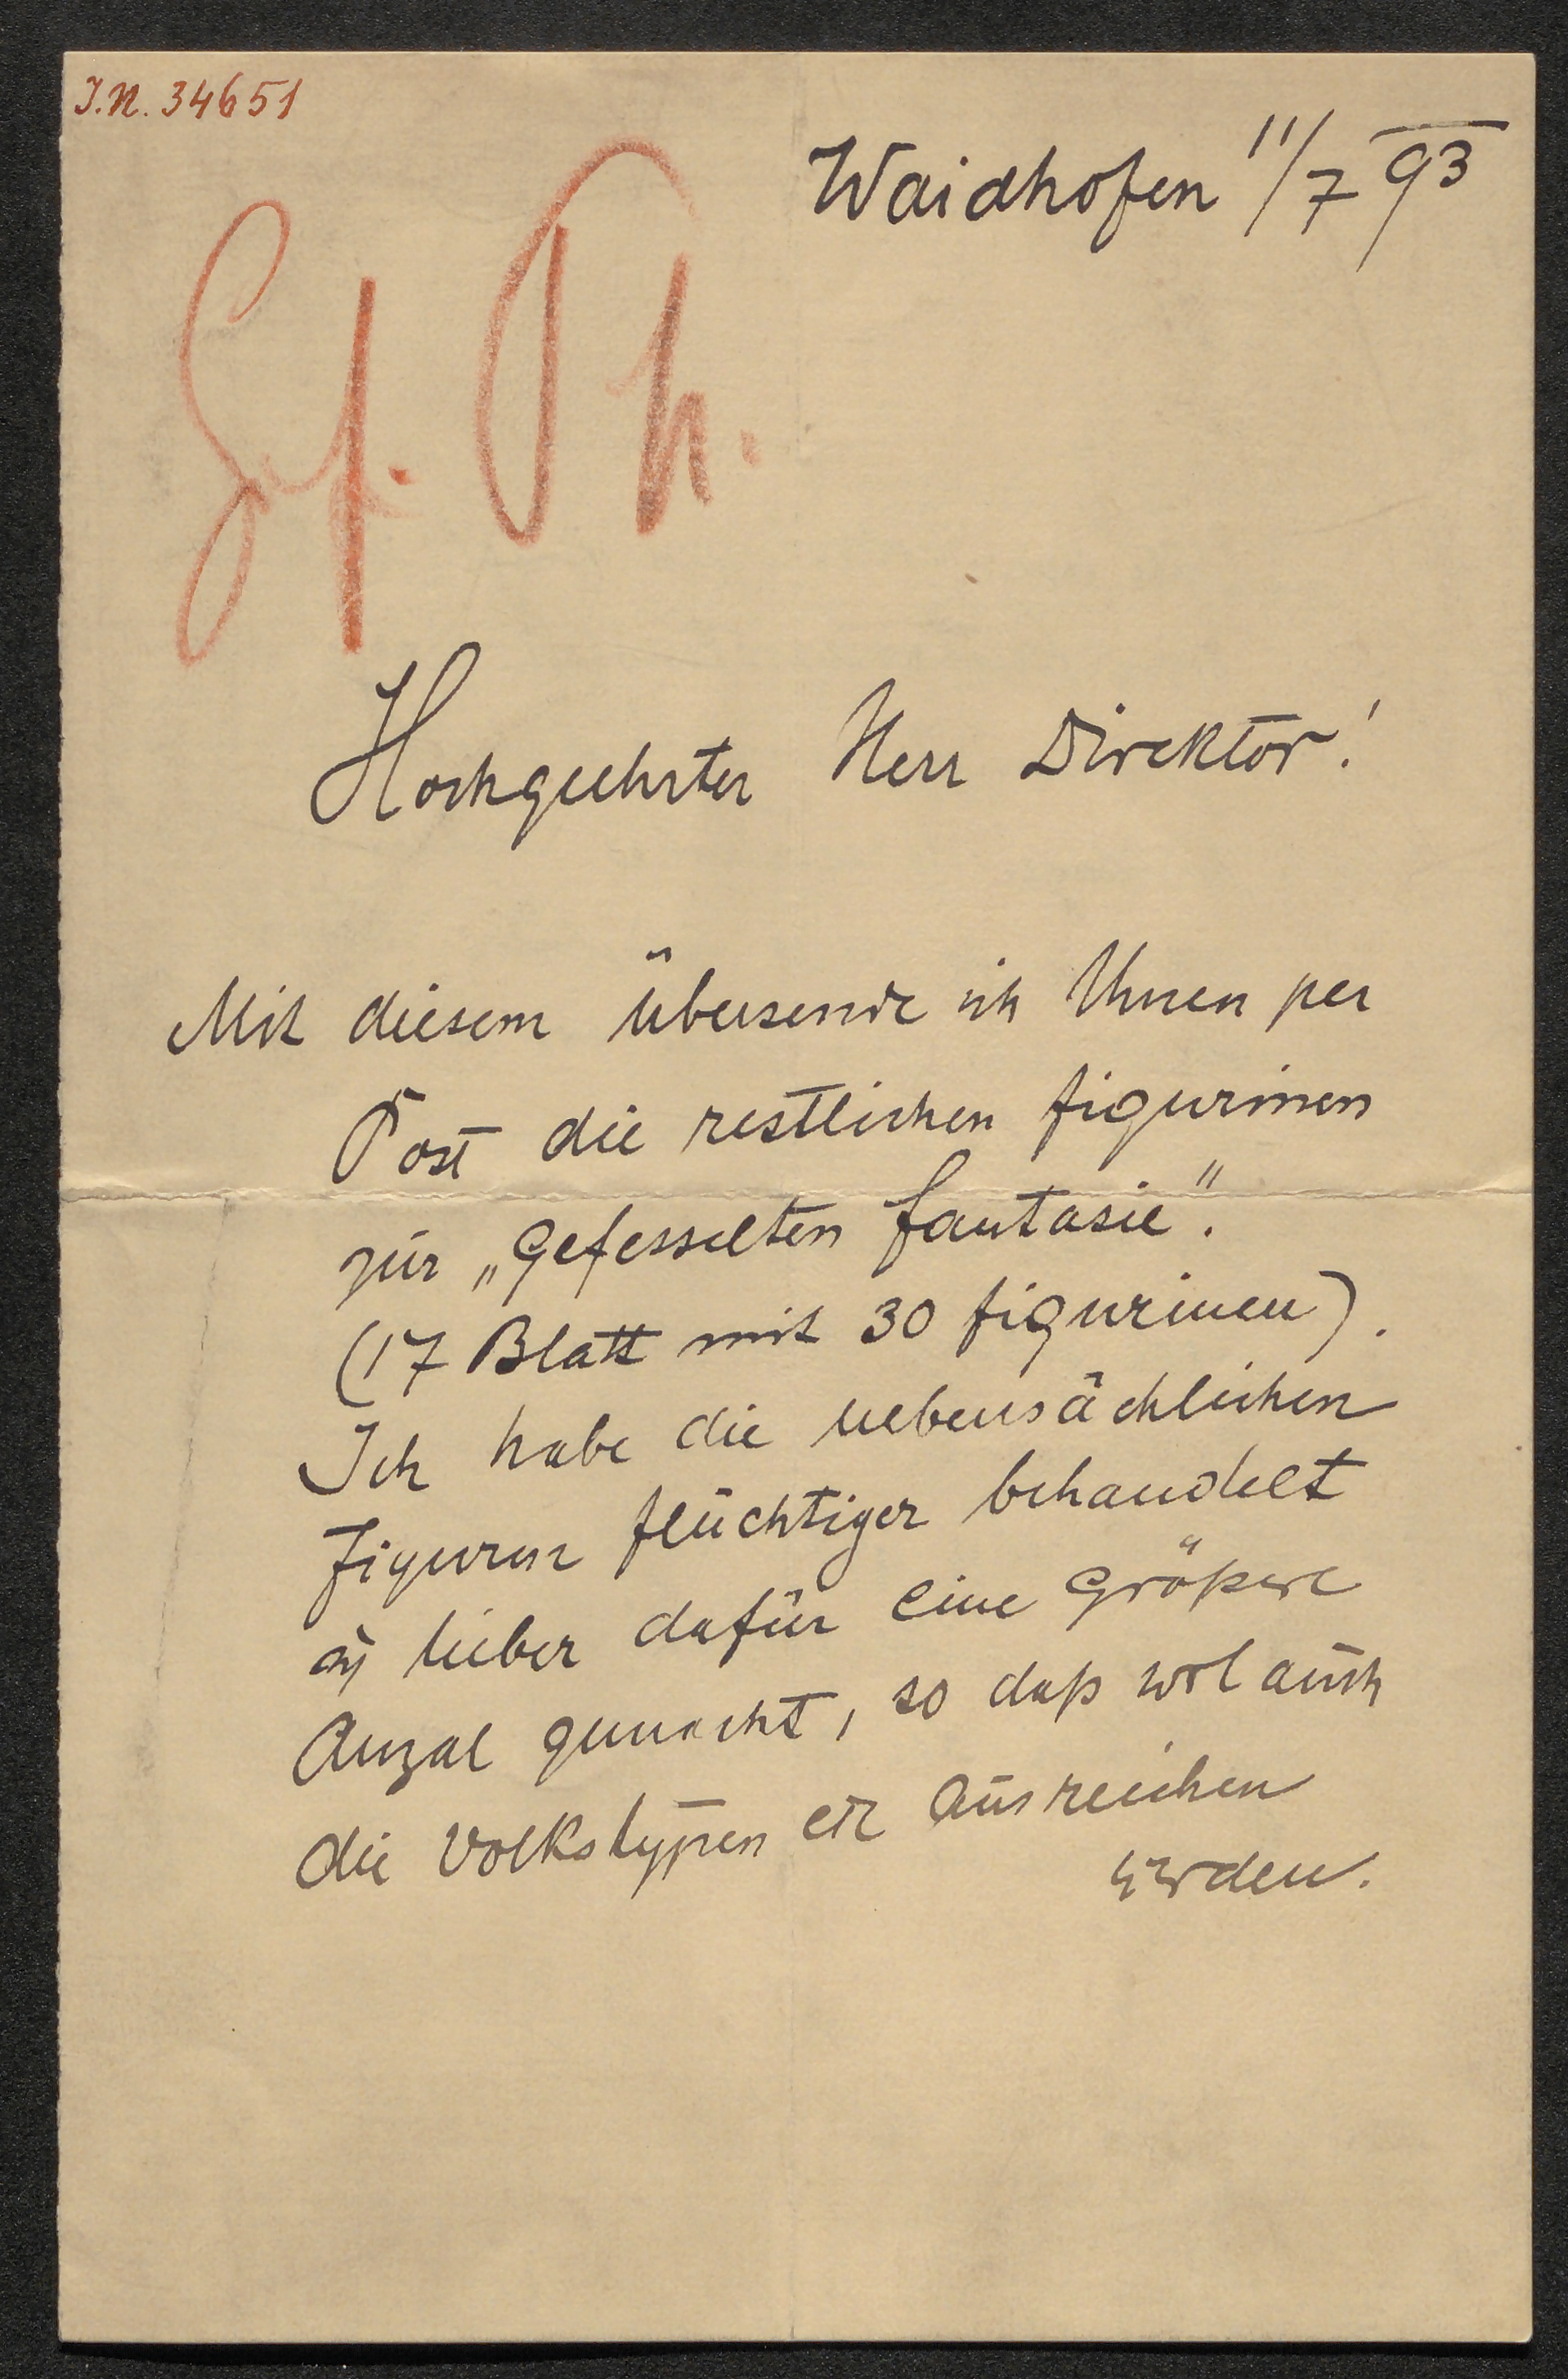 J.N. 34651
Waidhofen 11/7 93
Gef. Ph.
Hochgeehrter Herr Direktor!
Mit diesem übersende ich Ihnen per
Post die restlichen figurinen
zur „Gefesselten fantasie“.
(17 Blatt mit 30 figurinen).
Ich habe die nebensächlichen
Figuren flüchtiger behandelt
lieber dafür eine größere
Anzal gemacht, so daß wol auch
die Volkstypen etc ausreichen
werden.